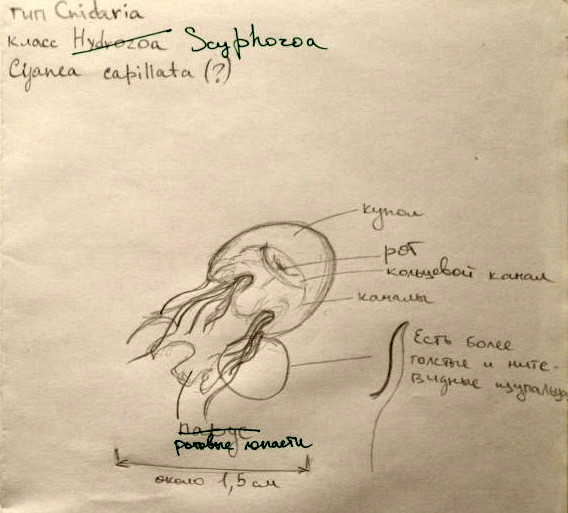 тип Cnidaria
класс Hydrozoa Scyphozoa
Cyanea capillata (?)
купол
рот
кольцевой канал
каналы
Есть более
толстые и ните-
видные щупальца
парус
ротовые лопасти
около 1,5 см